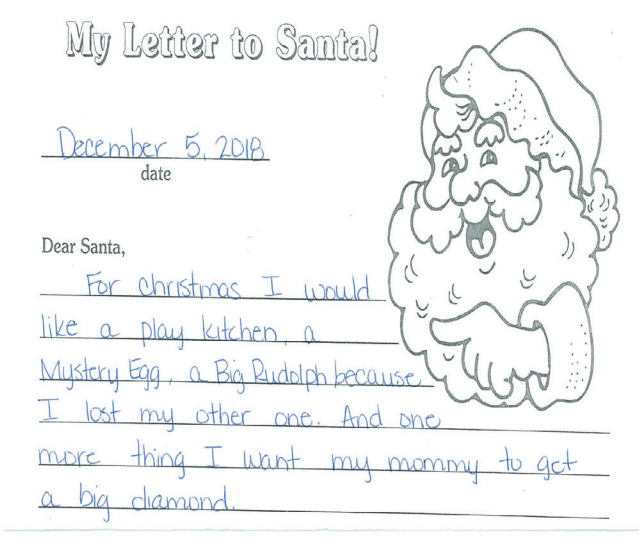 My Letter to Santa!
December 5, 2018
date
Dear Santa,
For christmas I would
like a play kitchen, a
Mystery Egg, a Big Rudolph because
I lost my other one. And one
more thing I want my mommy to get
a big diamond.